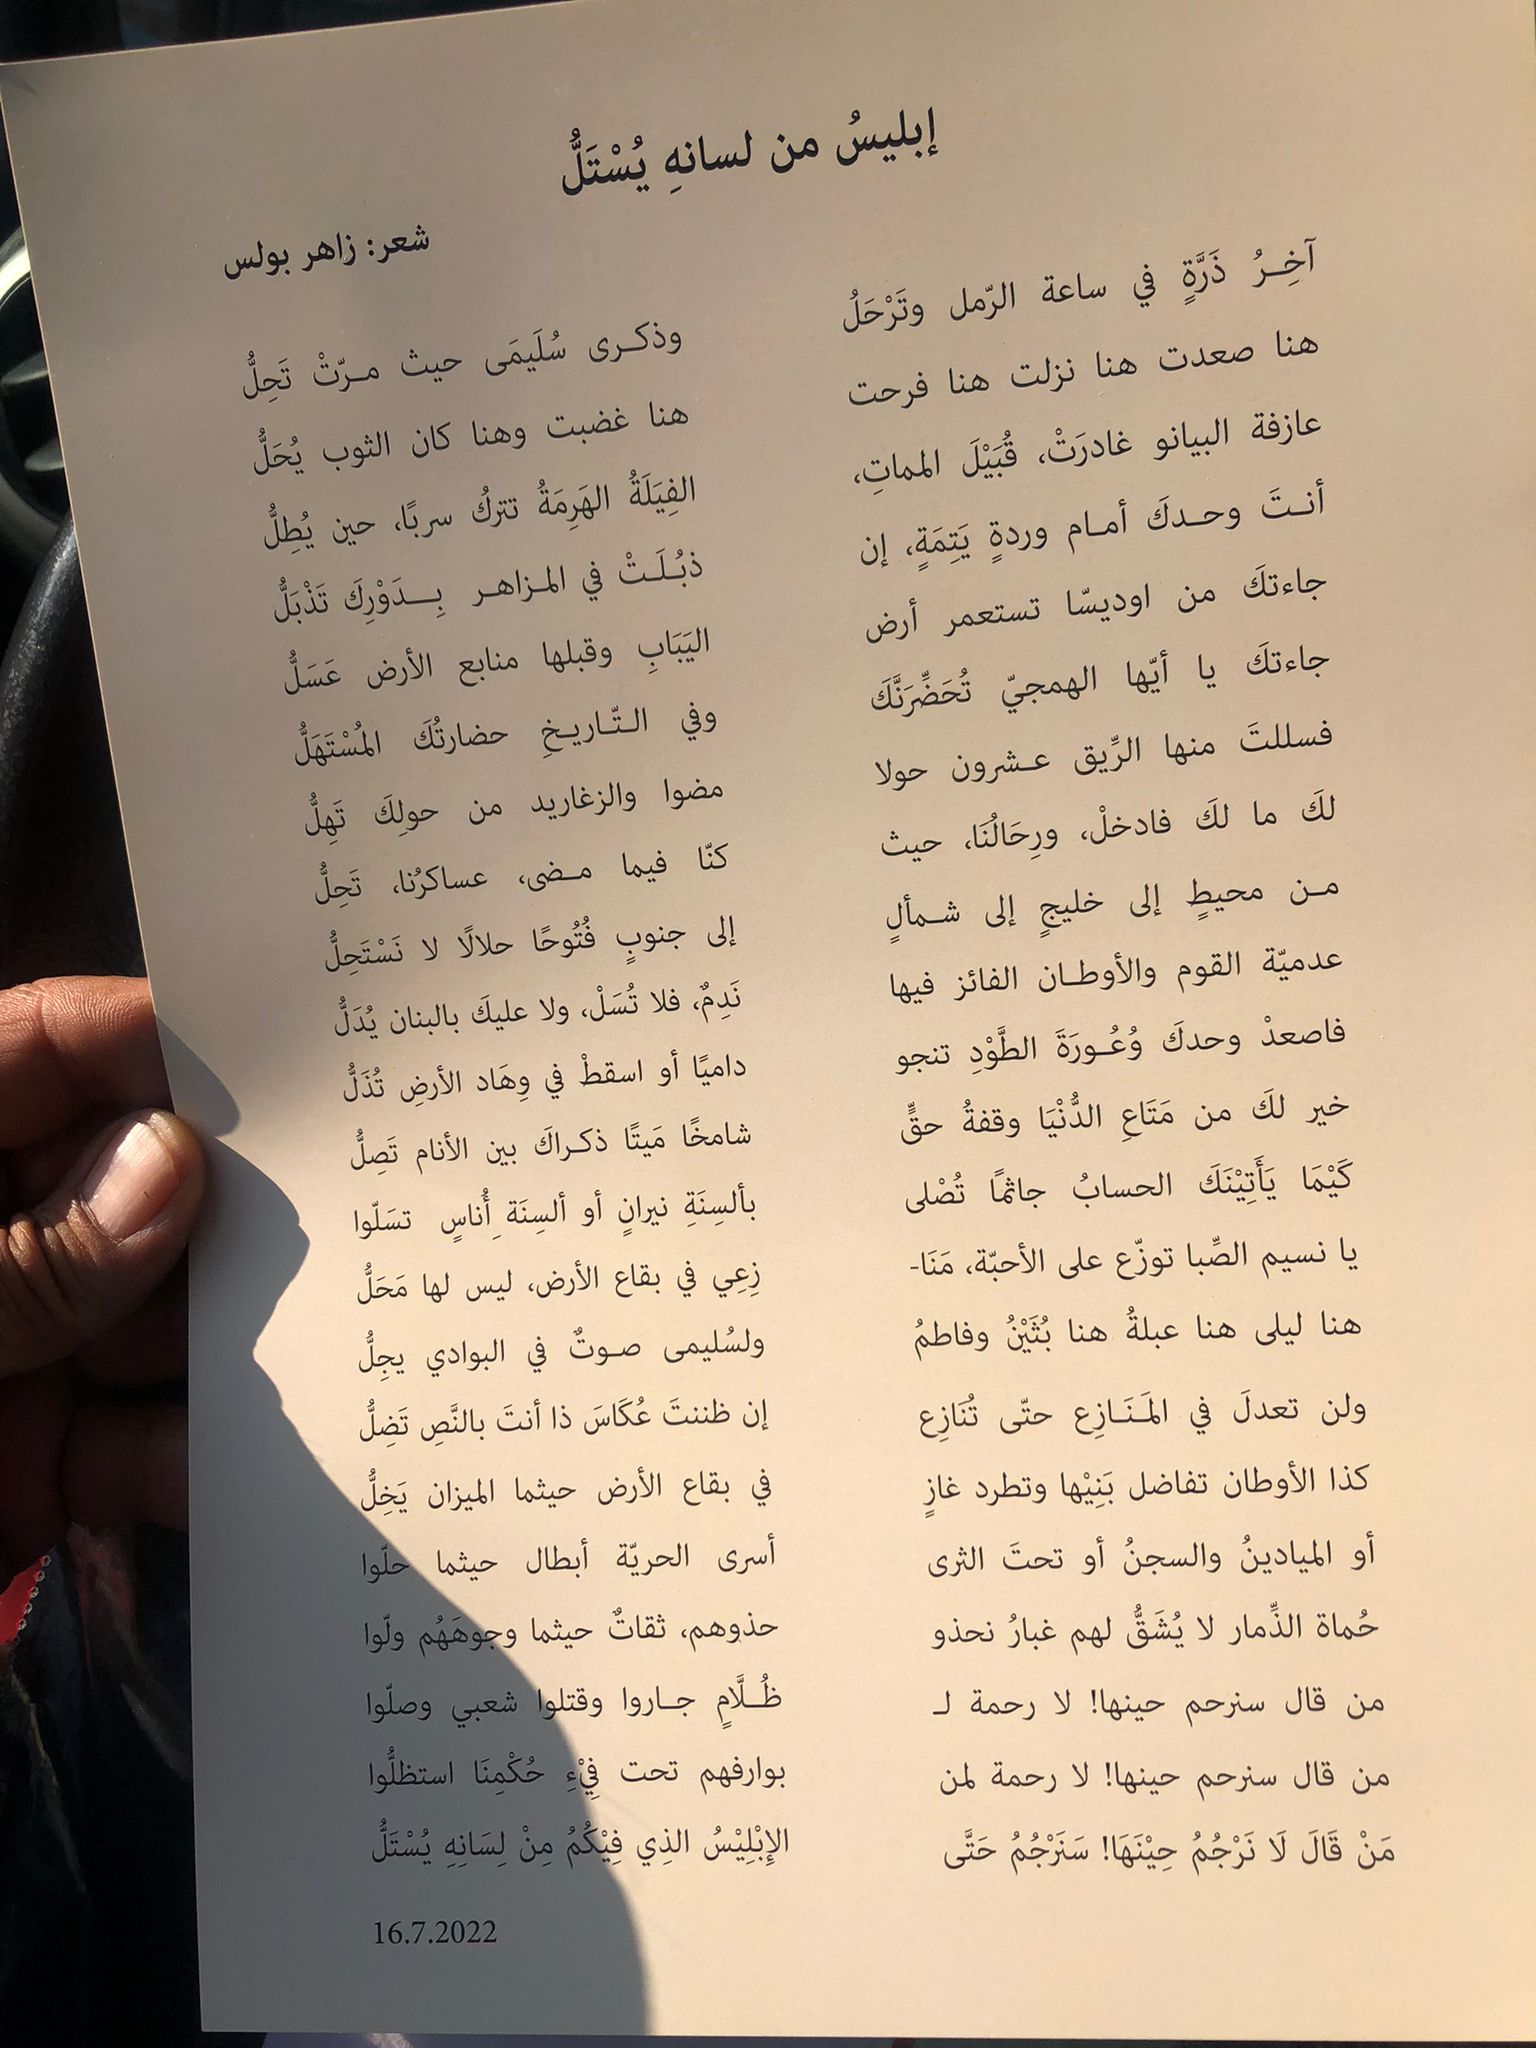 إبليسُ من لسانهِ يُسْتَلُّ
شعر: زاهر بولس
آخِرُ ذَرَّةٍ في ساعة الرّمل وتَرْحَلُ وذكرى سُلَيمَى حيث مرّتْ تَحِلُّ
هنا صعدت هنا نزلت هنا فرحت هنا غضبت وهنا كان الثوب يُحَلُّ
عازفة البيانو غادرَتْ، قُبَيْلَ المماتِ، الفِيَلَةُ الهَرِمَةُ تتركُ سربًا، حين يُطِلُّ
أنتَ وحدكَ أمام وردةٍ يَتِمَةٍ، إن ذبُلَتْ في المزاهر بِدَوْرِكَ تَذْبَلُّ
جاءتكَ من اوديسّا تستعمر أرض اليَبَابِ وقبلها منابع الأرض عَسَلُّ
جاءتكَ يا أيّها الهمجيّ تُحَضِّرَنَّكَ وفي التّاريخِ حضارتُكَ المُسْتَهَلُّ
فسللتَ منها الرِّيق عشرون حولا مضوا والزغاريد من حولِكَ تَهِلُّ
لكَ ما لكَ فادخلْ، ورِحَالُنَا، حيث كنّا فيما مضى، عساكرُنا، تَحِلُّ
من محيطٍ إلى خليجٍ إلى شمألٍ إلى جنوبٍ فُتُوحًا حلالًا لا نَسْتَحِلُّ
عدميّة القوم والأوطان الفائز فيها نَدِمٌ، فلا تُسَلْ، ولا عليكَ بالبنان يُدَلُّ
فاصعدْ وحدكَ وُعُورَةَ الطَّوْدِ تنجو داميًا أو اسقطْ في وِهَاد الأرضِ تُذَلُّ
خير لكَ من مَتَاعِ الدُّنْيَا وقفةُ حقٍّ شامخًا مَيتًا ذكراكَ بين الأنام تَصِلُّ
كَيْمَا يَأَتِيْنَكَ الحسابُ جاثمًا تُصْلى بألسِنَةِ نيرانٍ أو ألسِنَة ِأُناسٍ تسَلّوا
يا نسيم الصِّبا توزّع على الأحبّة، مَنَا- زِعِي في بقاع الأرض، ليس لها مَحَلُّ
هنا ليلى هنا عبلةُ هنا بُثَيْنُ وفاطمُ ولسُليمى صوتٌ في البوادي يجِلُّ
ولن تعدلَ في المَنَازِع حتّى تُنَازِع إن ظننتَ عُكَاسَ ذا أنتَ بالنَّصِ تَضِلُّ
كذا الأوطان تفاضل بَنِيْها وتطرد غازٍ في بقاع الأرض حيثما الميزان يَخِلُّ
أو الميادينُ والسجنُ أو تحتَ الثرى أسرى الحريّة أبطال حيثما حلّوا
حُماة الذِّمار لا يُشَقُّ لهم غبارُ نحذو حذوهم، ثقاتٌ حيثما وجوهَهُم ولّوا
من قال سنرحم حينها! لا رحمة لـ ظُلَّامٍ جاروا وقتلوا شعبي وصلّوا
من قال سنرحم حينها! لا رحمة لمن بوارفهم تحت فِيْءِ حُكْمِنَا استظلُّوا
مَنْ قَالَ لَا نَرْجُمُ حِيْنَهَا! سَنَرْجُمُ حَتَّى الإِبْلِيْسُ الذِي فِيْكُمُ مِنْ لِسَانِهِ يُسْتَلُّ
16.7.2022